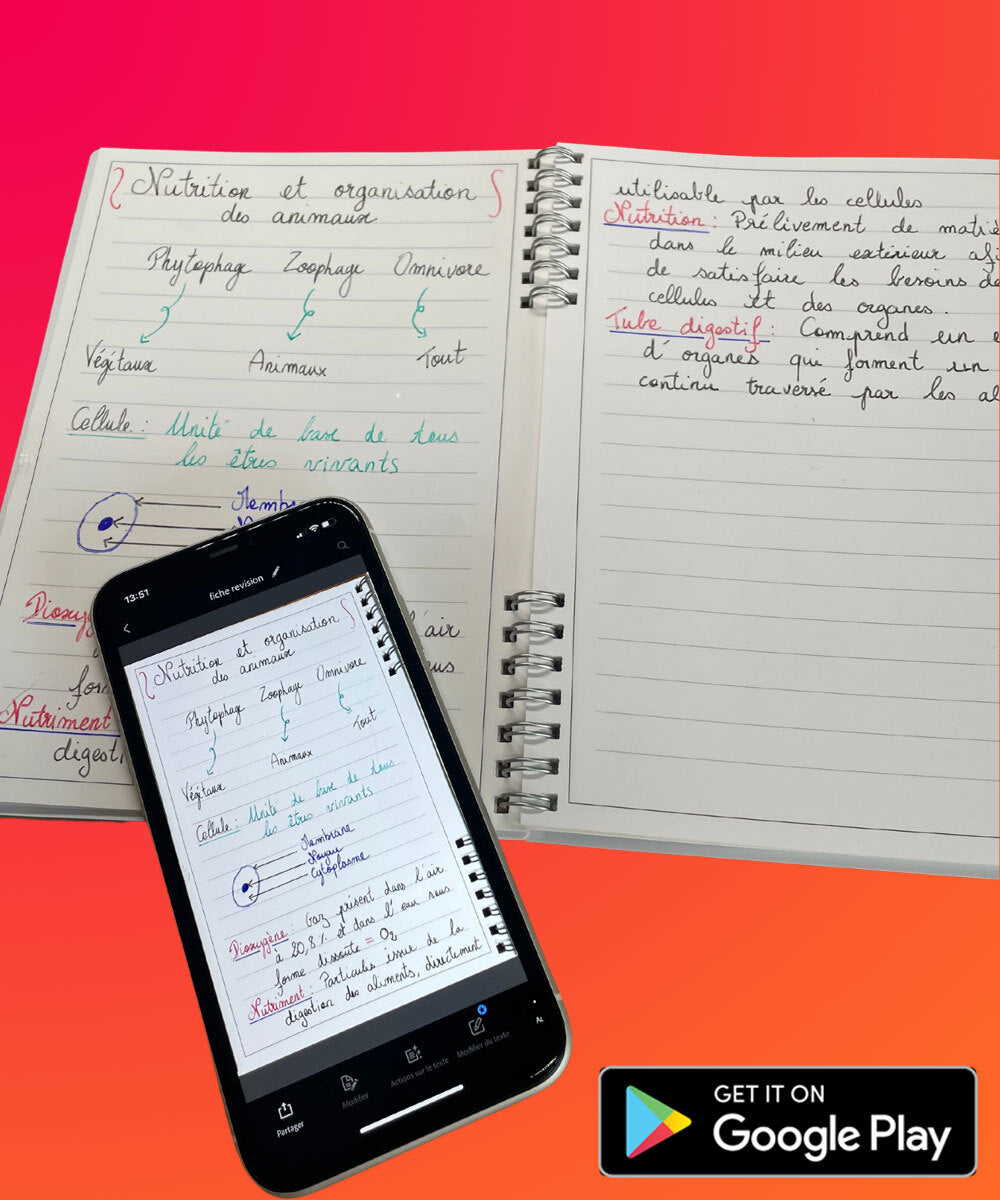 Nutrition et organisation
des animaux
Phytophage Zoophage Omnivore
Végétaux Animaux Tout
Cellule : Unité de base de tous
les êtres vivants
digest
utilisable par les cellules
Nutrition : Prélivement de
dans le milieu extérieur
de satisfaire les besoins
cellules et des organes.
Tube digestif : Comprend un
d'organes qui forment un
continu traversé par les
13:51
fiche revision
Nutrition et organisation
des animaux
Phytophage Zoophage Omnivore
Végétaux Animaux Tout
Cellule : Unité de base de tous
les êtres vivants
Membrane
Noyau
Cytoplasme
Dioxygène : Gaz présent dans l'air
à 20,8% et dans l'eau sous
forme dissoute = O₂
Nutriment : Particules issue de la
digestion des aliments, directement
Partager
Modifier
Actions sur le texte
Modifier du texte
GET IT ON
Google Play